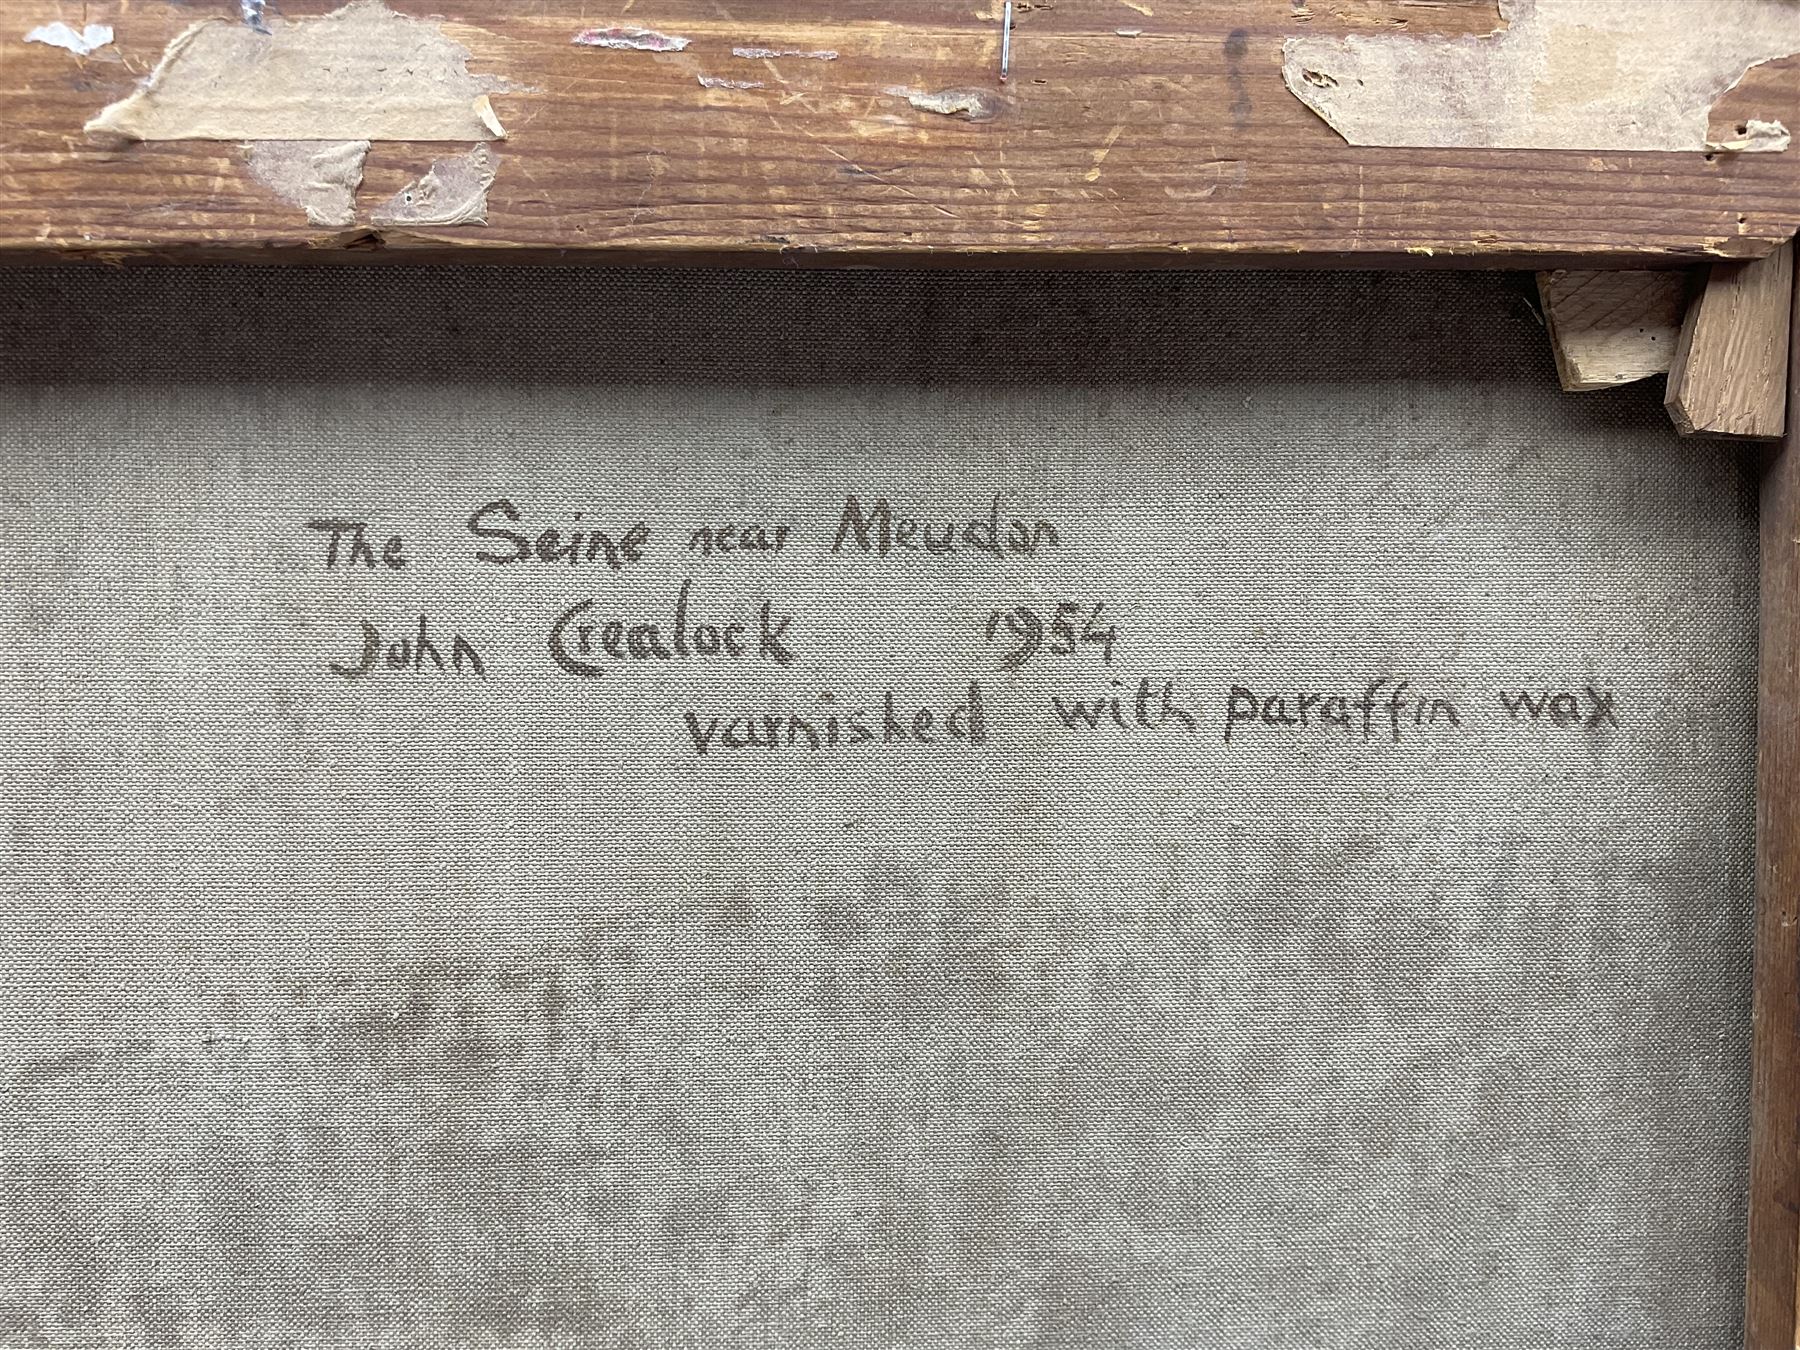 The Seine near Meudon
John Crealock 1954
varnished with paraffin wax